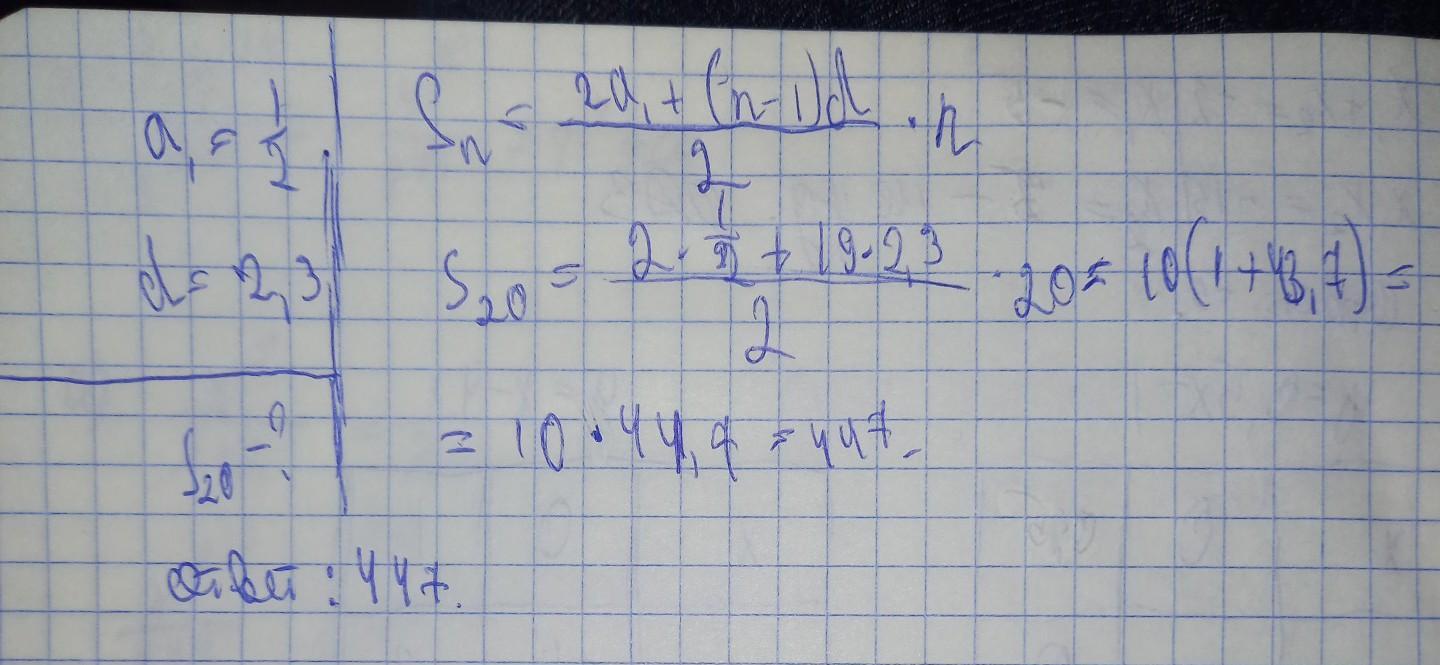 a₁ = 1/2
d = 2,3
S₂₀ - ?
Sₙ = (2a₁ + (n-1)d)/2 · n
S₂₀ = (2 · 1/2 + 19 · 2,3)/2 · 20 = 10(1 + 43,7) =
= 10 · 44,7 = 447.
Ответ: 447.